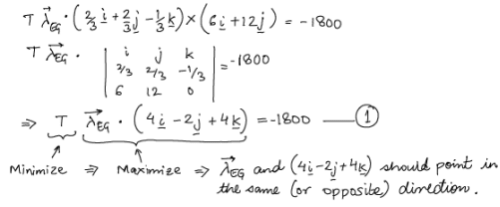 T λ⃗_EG · (2/3 i + 2/3 j - 1/3 k) × (6i + 12j) = -1800
T λ⃗_EG · | i j k | = -1800
| 2/3 2/3 -1/3 |
| 6 12 0 |
⇒ T λ⃗_EG · (4i - 2j + 4k) = -1800 —— ①
Minimize ⇒ Maximize ⇒ λ⃗_EG and (4i-2j+4k) should point in
the same (or opposite) direction.